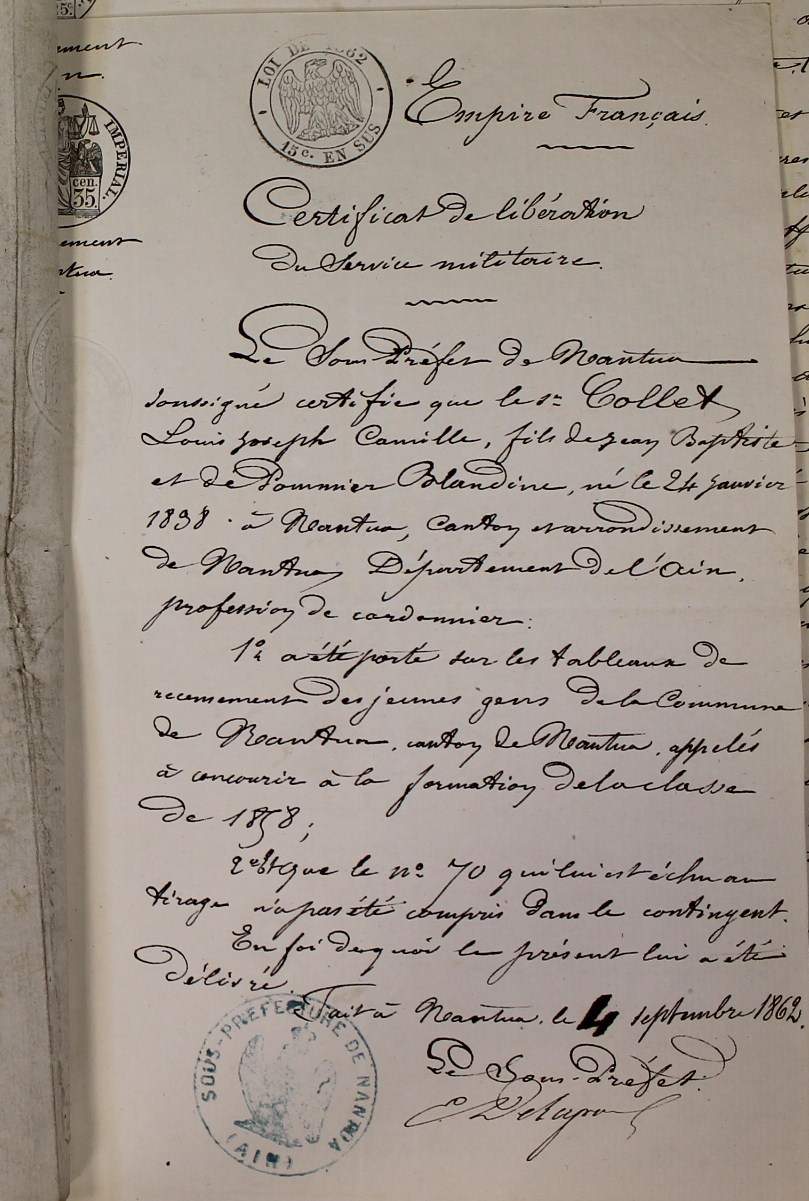 ement
n.
IMPERIAL.
cen.
35.
ement
LOI DE 1862
15 c. EN SUS
Empire Français.
Certificat de libération
du Service militaire.
Le Sous-Préfet de Nantua
soussigné certifie que le sr Collet
Louis Joseph Camille, fils de Jean Baptiste
et de Pommier Blandine, né le 24 Janvier
1838 à Nantua, Canton et arrondissement
de Nantua, Département de l'Ain,
profession de cordonnier:
1o a été porté sur les tableaux de
recensement des jeunes gens de la Commune
de Nantua, canton de Nantua, appelés
à concourir à la formation de la classe
de 1858;
2o Et que le no 70 qui lui est échu au
tirage n'a pas été compris dans le contingent.
En foi de quoi le présent lui a été
délivré.
Fait à Nantua, le 4 septembre 1862.
Le Sous-Préfet.
SOUS-PREFECTURE DE NANTUA
(AIN)